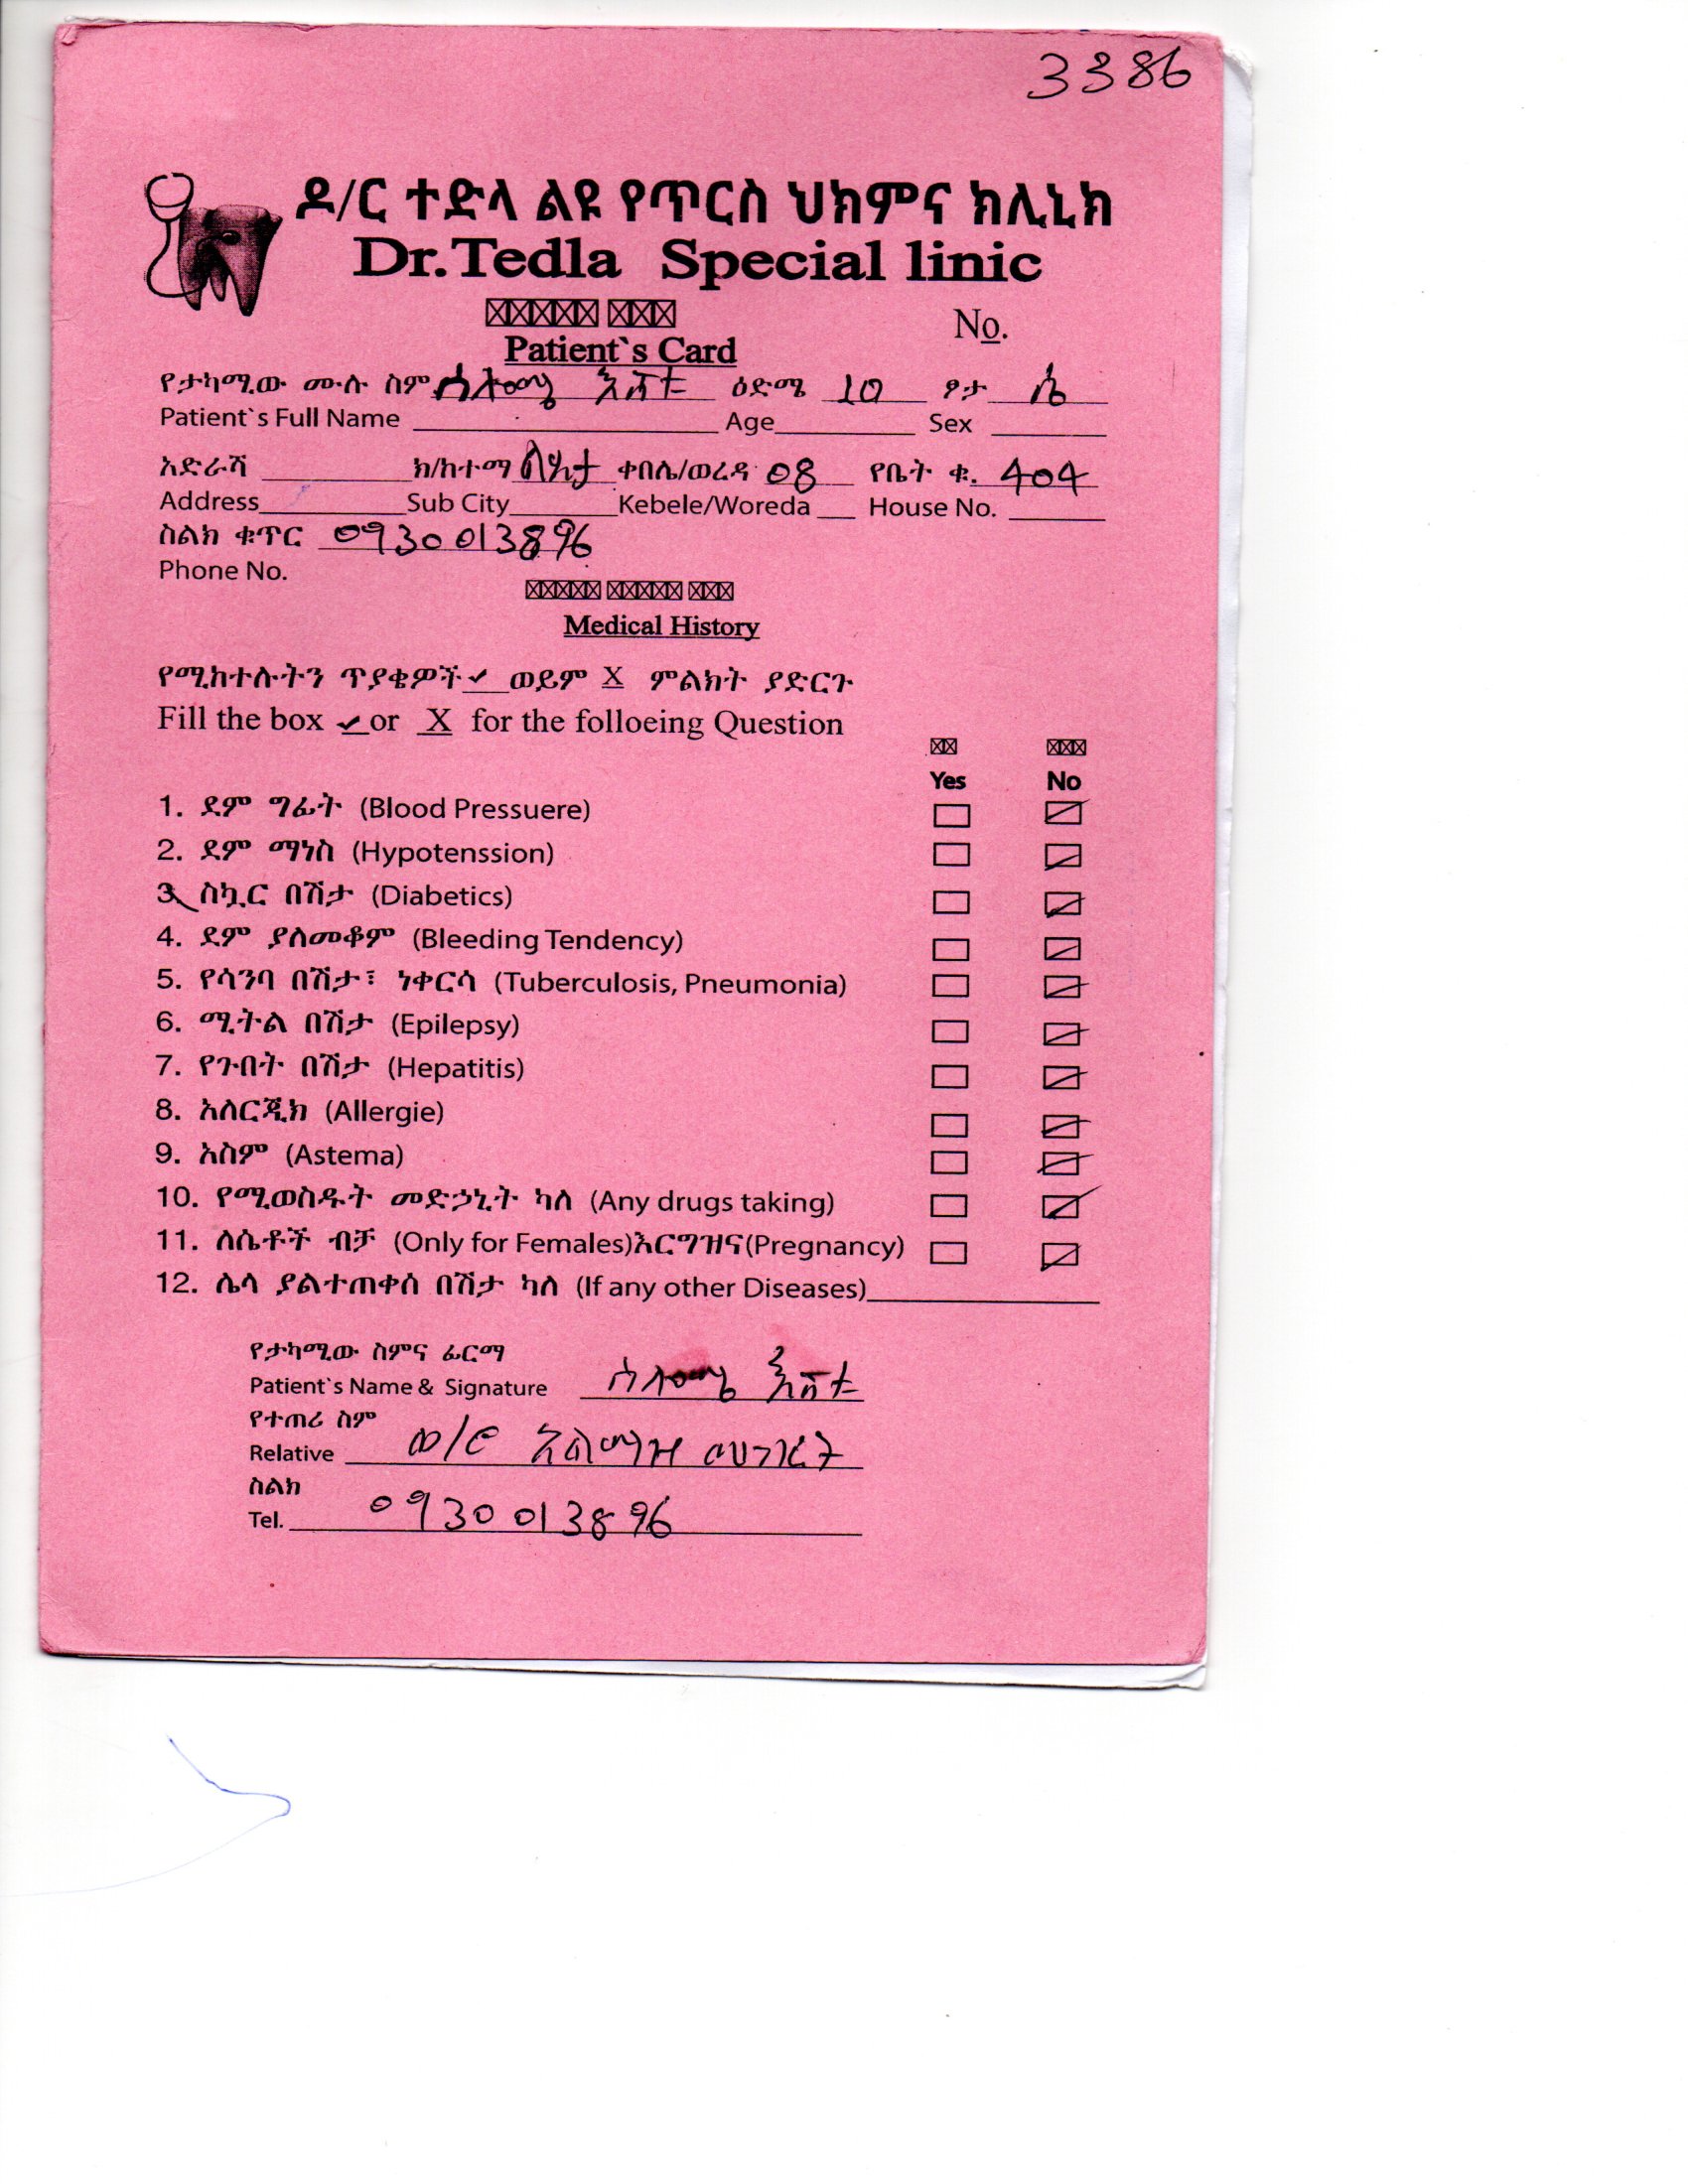 3386
ዶ/ር ተድላ ልዩ የጥርስ ህክምና ክሊኒክ
Dr.Tedla Special linic
No.
Patient`s Card
የታካሚው ሙሉ ስም ሰሎሜ እሸቱ ዕድሜ 10 ፆታ ሴ
Patient`s Full Name Age Sex
አድራሻ ክ/ከተማ ልደታ ቀበሌ/ወረዳ 08 የቤት ቁ. 404
Address Sub City Kebele/Woreda House No.
ስልክ ቁጥር 0930013896
Phone No.
Medical History
የሚከተሉትን ጥያቄዎች ✓ ወይም X ምልክት ያድርጉ
Fill the box ✓ or X for the folloeing Question
Yes No
1. ደም ግፊት (Blood Pressuere)
2. ደም ማነስ (Hypotenssion)
3. ስኳር በሽታ (Diabetics)
4. ደም ያለመቆም (Bleeding Tendency)
5. የሳንባ በሽታ፣ ነቀርሳ (Tuberculosis, Pneumonia)
6. ሚትል በሽታ (Epilepsy)
7. የጉበት በሽታ (Hepatitis)
8. አለርጂክ (Allergie)
9. አስም (Astema)
10. የሚወስዱት መድኃኒት ካለ (Any drugs taking)
11. ለሴቶች ብቻ (Only for Females)እርግዝና(Pregnancy)
12. ሌላ ያልተጠቀሰ በሽታ ካለ (If any other Diseases)
የታካሚው ስምና ፊርማ
Patient`s Name & Signature ሰሎሜ እሸቱ
የተጠሪ ስም
Relative ወ/ሮ አልማዝ
ስልክ
Tel. 0930013896